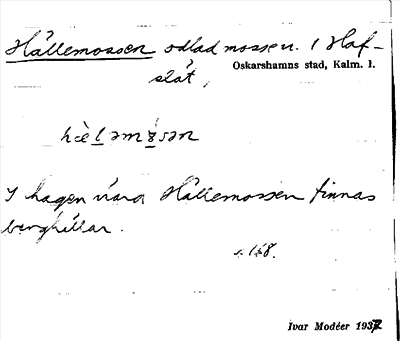 Hällemossen odlad mosse n. i Haf-
slät,
Oskarshamns stad, Kalm. l.
hæ̀l̲əmo̲sən
I hagen nära Hällemossen finnas
berghällar.
s. 168.
Ivar Modéer 1937